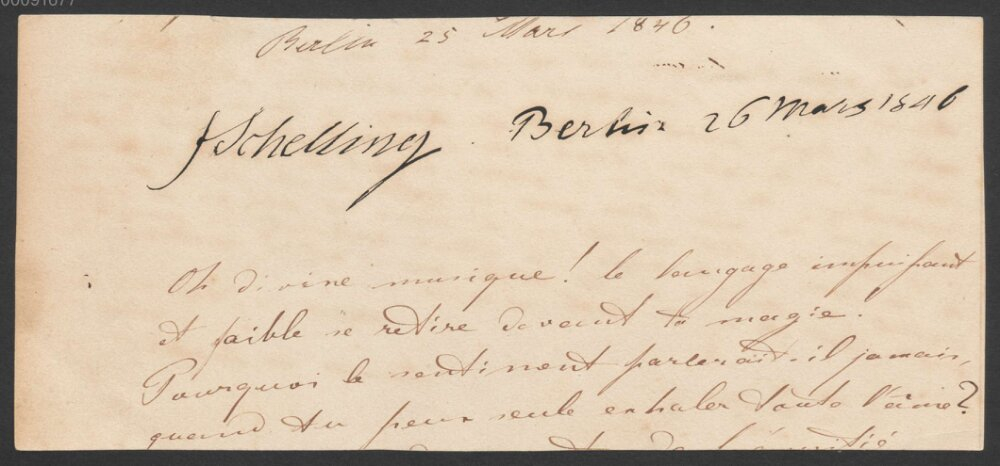 00091677
Berlin 25 Mars 1846.
fSchelling. Berlin 26 Mars 1846
Oh divine musique! le langage impuissant
et faible se retire devant ta magie.
Pourquoi le sentiment parlerait-il jamais,
quand tu peux seule exhaler toute l'âme?